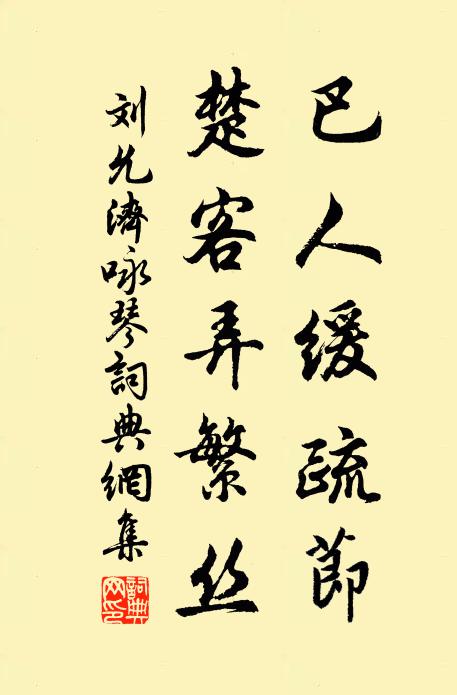 巴人缓疏節
楚客弄繁丝
刘允濟咏琴詞典網集
詞典网印